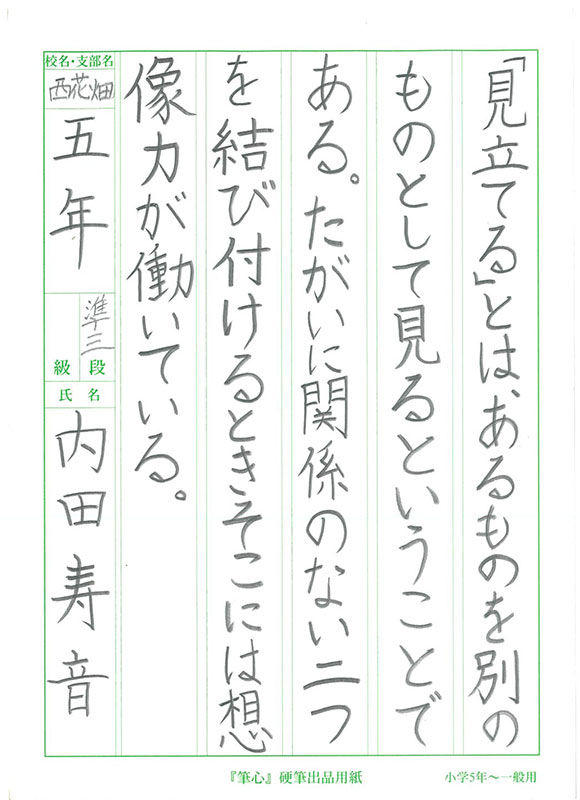 「見立てる」とは、あるものを別の
ものとして見るということで
ある。たがいに関係のない二つ
を結び付けるときそこには想
像力が働いている。
校名・支部名
西花畑
五年
準三
段
級
氏名
内田寿音
『筆心』硬筆出品用紙
小学5年〜一般用